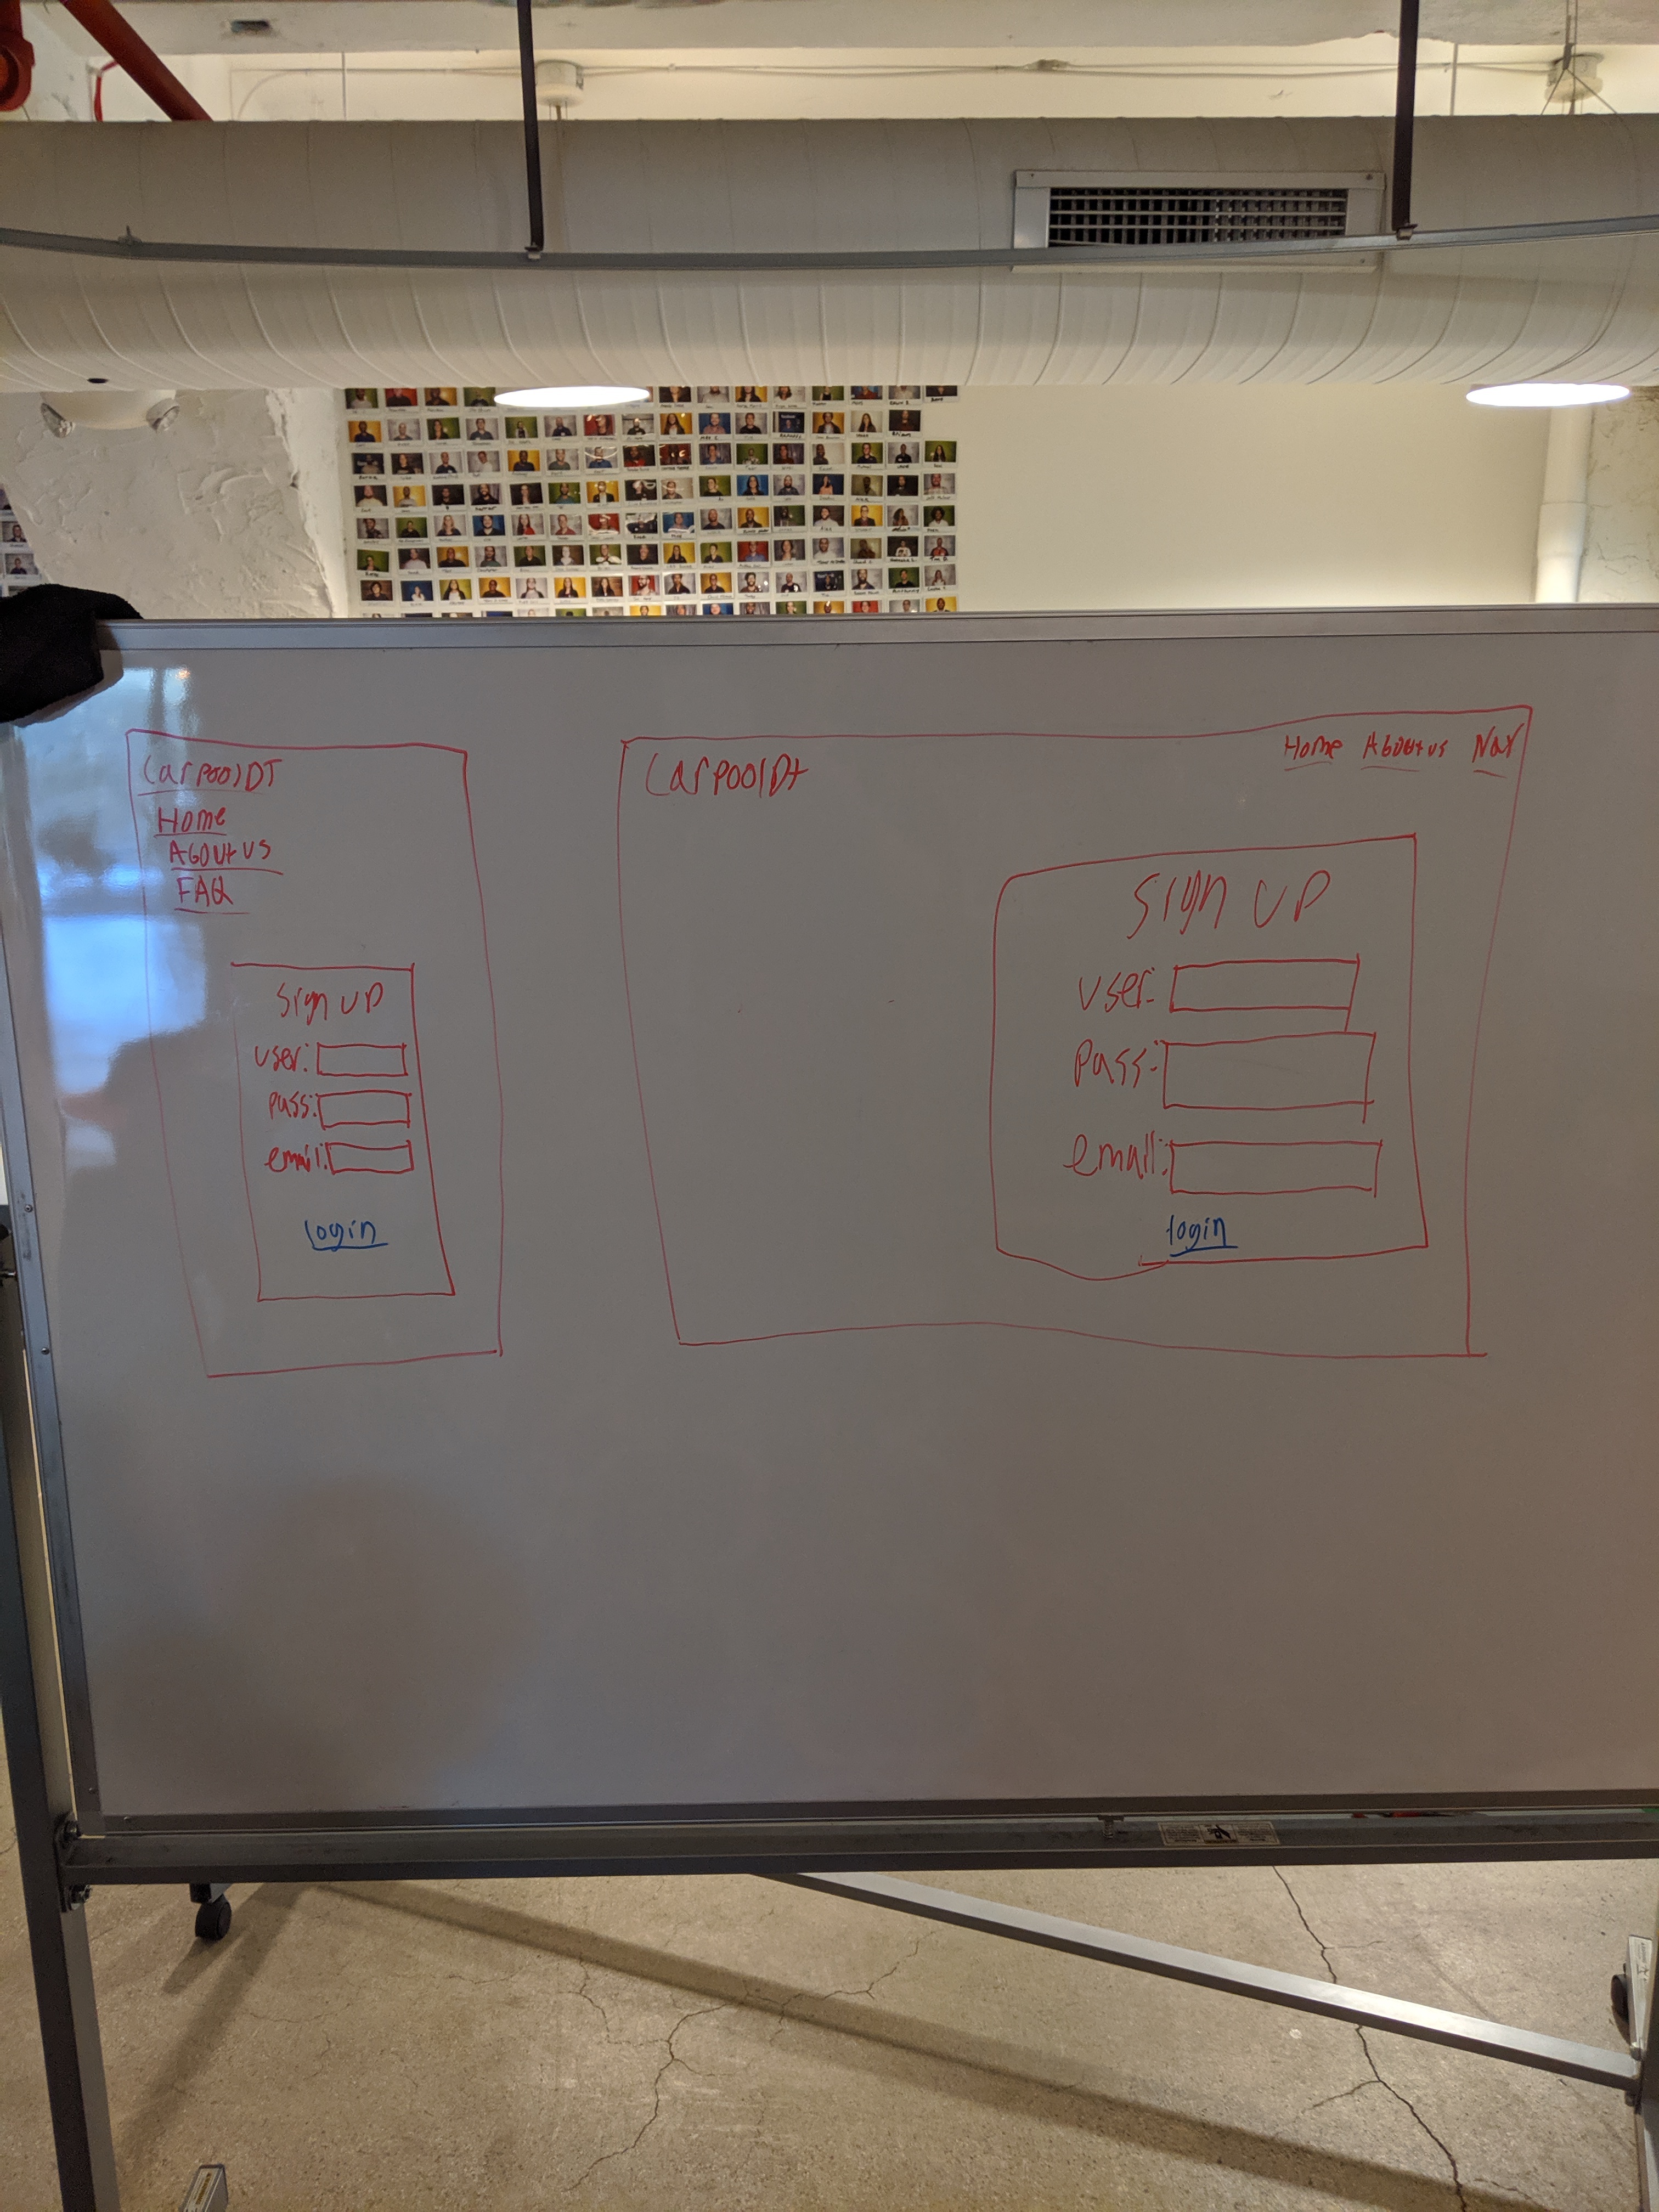 CarpoolDT
Home
About us
FAQ
sign up
user:
pass:
email:
login
CarpoolDt
Home About us Nav
sign up
user:
Pass:
email:
login